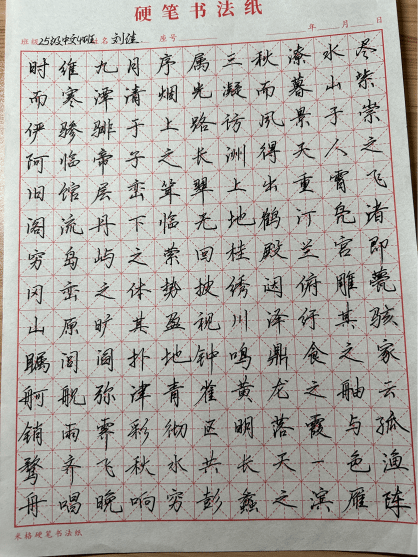 硬笔书法纸
班级 25级中文4班 姓名 刘佳 座号 年 月 日
时维九月序属三秋潦水尽
而寒潭清烟光凝而暮山紫
俨骖騑于上路访风景于崇
阿临帝子之长洲得天人之
旧馆层峦耸翠上出重霄飞
阁流丹下临无地鹤汀凫渚
穷岛屿之萦回桂殿兰宫即
冈峦之体势披绣闼俯雕甍
山原旷其盈视川泽纡其骇
瞩闾阎扑地钟鸣鼎食之家
舸舰弥津青雀黄龙之舳云
销雨霁彩彻区明落霞与孤
鹜齐飞秋水共长天一色渔
舟唱晚响穷彭蠡之滨雁阵
米格硬笔书法纸